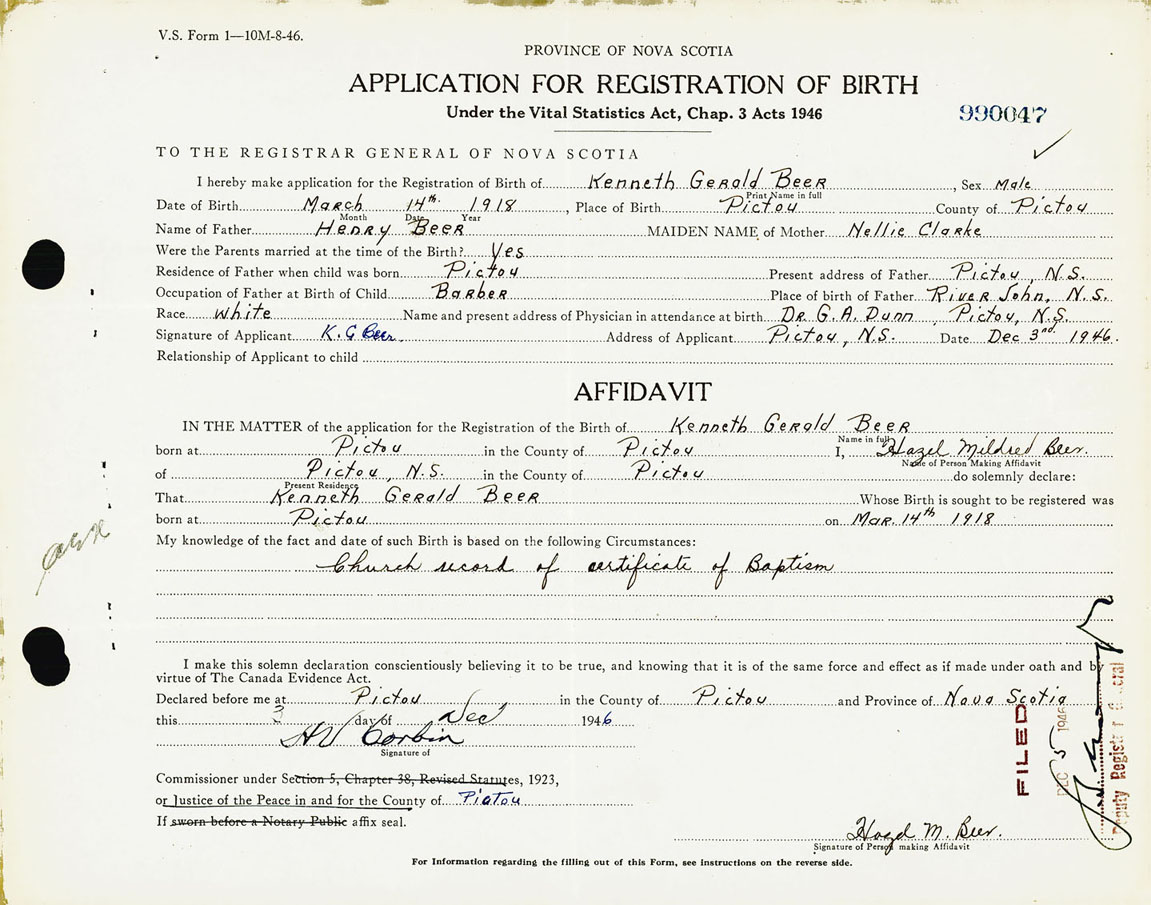 V.S. Form 1—10M-8-46.
PROVINCE OF NOVA SCOTIA
APPLICATION FOR REGISTRATION OF BIRTH
Under the Vital Statistics Act, Chap. 3 Acts 1946
990047
TO THE REGISTRAR GENERAL OF NOVA SCOTIA
I hereby make application for the Registration of Birth of Kenneth Gerald Beer, Sex Male
Print Name in full
Date of Birth March 14th. 1918, Place of Birth Pictou County of Pictou
Month Date Year
Name of Father Henry Beer MAIDEN NAME of Mother Nellie Clarke
Were the Parents married at the time of the Birth? Yes
Residence of Father when child was born Pictou Present address of Father Pictou, N.S.
Occupation of Father at Birth of Child Barber Place of birth of Father River John, N.S.
Race White Name and present address of Physician in attendance at birth Dr. G. A. Dunn Pictou, N.S.
Signature of Applicant K. G Beer. Address of Applicant Pictou, N.S. Date Dec 3rd. 1946.
Relationship of Applicant to child
AFFIDAVIT
IN THE MATTER of the application for the Registration of the Birth of Kenneth Gerald Beer
Name in full
born at Pictou in the County of Pictou I, Hazel Mildred Beer.
Name of Person Making Affidavit
of Pictou, N.S. in the County of Pictou do solemnly declare:
Present Residence
That Kenneth Gerald Beer Whose Birth is sought to be registered was
born at Pictou on Mar. 14th 1918
My knowledge of the fact and date of such Birth is based on the following Circumstances:
Church record of certificate of Baptism
I make this solemn declaration conscientiously believing it to be true, and knowing that it is of the same force and effect as if made under oath and by
virtue of The Canada Evidence Act.
Declared before me at Pictou in the County of Pictou and Province of Nova Scotia
this 3 day of Dec 1946
HV Corbin
Signature of
Commissioner under Section 5, Chapter 38, Revised Statutes, 1923,
or Justice of the Peace in and for the County of Pictou
If sworn before a Notary Public affix seal.
FILED
DEC 5 1946
Deputy Registrar General
Hazel M. Beer.
Signature of Person making Affidavit
For Information regarding the filling out of this Form, see instructions on the reverse side.